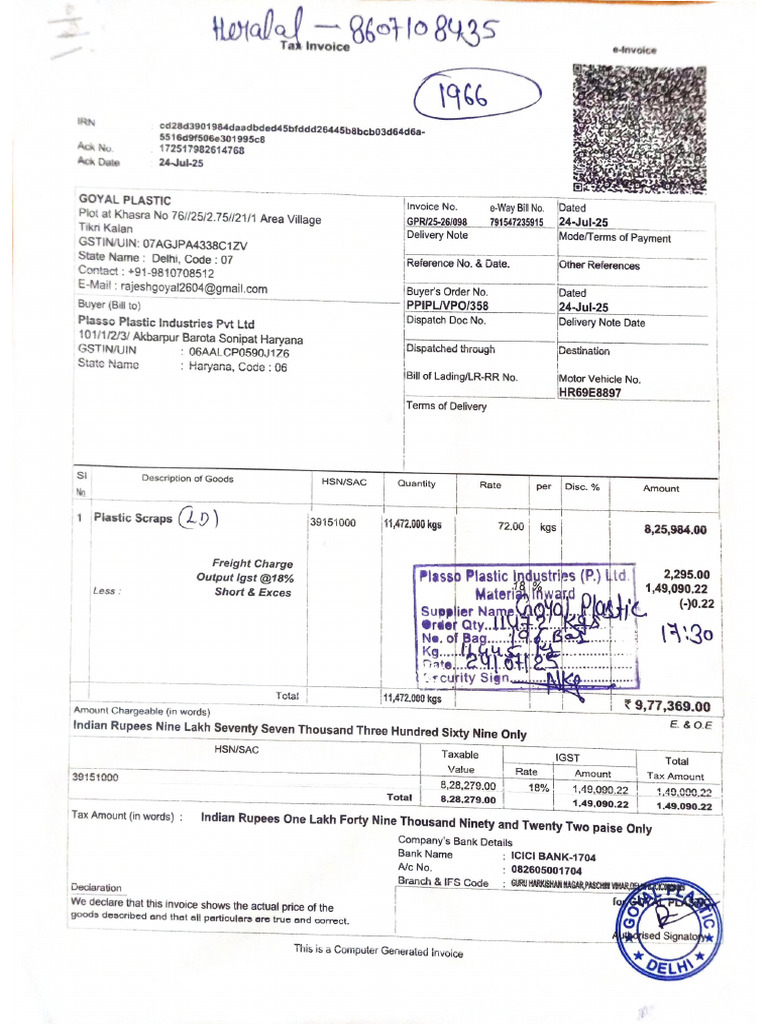 Heralal – 8607108435
Tax Invoice
e-Invoice
1966
IRN : cd28d3901984daadbded45bfddd26445b8bcb03d64d6a-
5516d9f506e301995c8
Ack No. : 172517982614768
Ack Date : 24-Jul-25
GOYAL PLASTIC
Plot at Khasra No 76//25/2.75//21/1 Area Village
Tikri Kalan
GSTIN/UIN: 07AGJPA4338C1ZV
State Name : Delhi, Code : 07
Contact : +91-9810708512
E-Mail : rajeshgoyal2604@gmail.com
Buyer (Bill to)
Plasso Plastic Industries Pvt Ltd
101/1/2/3/ Akbarpur Barota Sonipat Haryana
GSTIN/UIN : 06AALCP0590J1Z6
State Name : Haryana, Code : 06
Invoice No. e-Way Bill No. Dated
GPR/25-26/098 791547235915 24-Jul-25
Delivery Note Mode/Terms of Payment
Reference No. & Date. Other References
Buyer's Order No. Dated
PPIPL/VPO/358 24-Jul-25
Dispatch Doc No. Delivery Note Date
Dispatched through Destination
Bill of Lading/LR-RR No. Motor Vehicle No.
HR69E8897
Terms of Delivery
Sl Description of Goods HSN/SAC Quantity Rate per Disc. % Amount
No
1 Plastic Scraps (LD) 39151000 11,472.000 kgs 72.00 kgs 8,25,984.00
Freight Charge 2,295.00
Output Igst @18% 18 % 1,49,090.22
Less : Short & Exces (-)0.22
Plasso Plastic Industries (P.) Ltd.
Material Inward
Supplier Name Goyal Plastic
Order Qty. 11472 Kgs
No. of Bag
Kg.
Date 24/07/25
Security Sign.
17:30
Total 11,472.000 kgs ₹ 9,77,369.00
Amount Chargeable (in words) E. & O.E
Indian Rupees Nine Lakh Seventy Seven Thousand Three Hundred Sixty Nine Only
HSN/SAC Taxable IGST Total
Value Rate Amount Tax Amount
39151000 8,28,279.00 18% 1,49,090.22 1,49,090.22
Total 8,28,279.00 1,49,090.22 1,49,090.22
Tax Amount (in words) : Indian Rupees One Lakh Forty Nine Thousand Ninety and Twenty Two paise Only
Company's Bank Details
Bank Name : ICICI BANK-1704
A/c No. : 082605001704
Branch & IFS Code : GURU HARKISHAN NAGAR,PASCHIM VIHAR,
Declaration
We declare that this invoice shows the actual price of the
goods described and that all particulars are true and correct.
for GOYAL PLASTIC
Authorised Signatory
GOYAL PLASTIC
DELHI
This is a Computer Generated Invoice